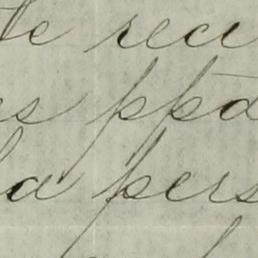 te reci
es ppdo
la pers